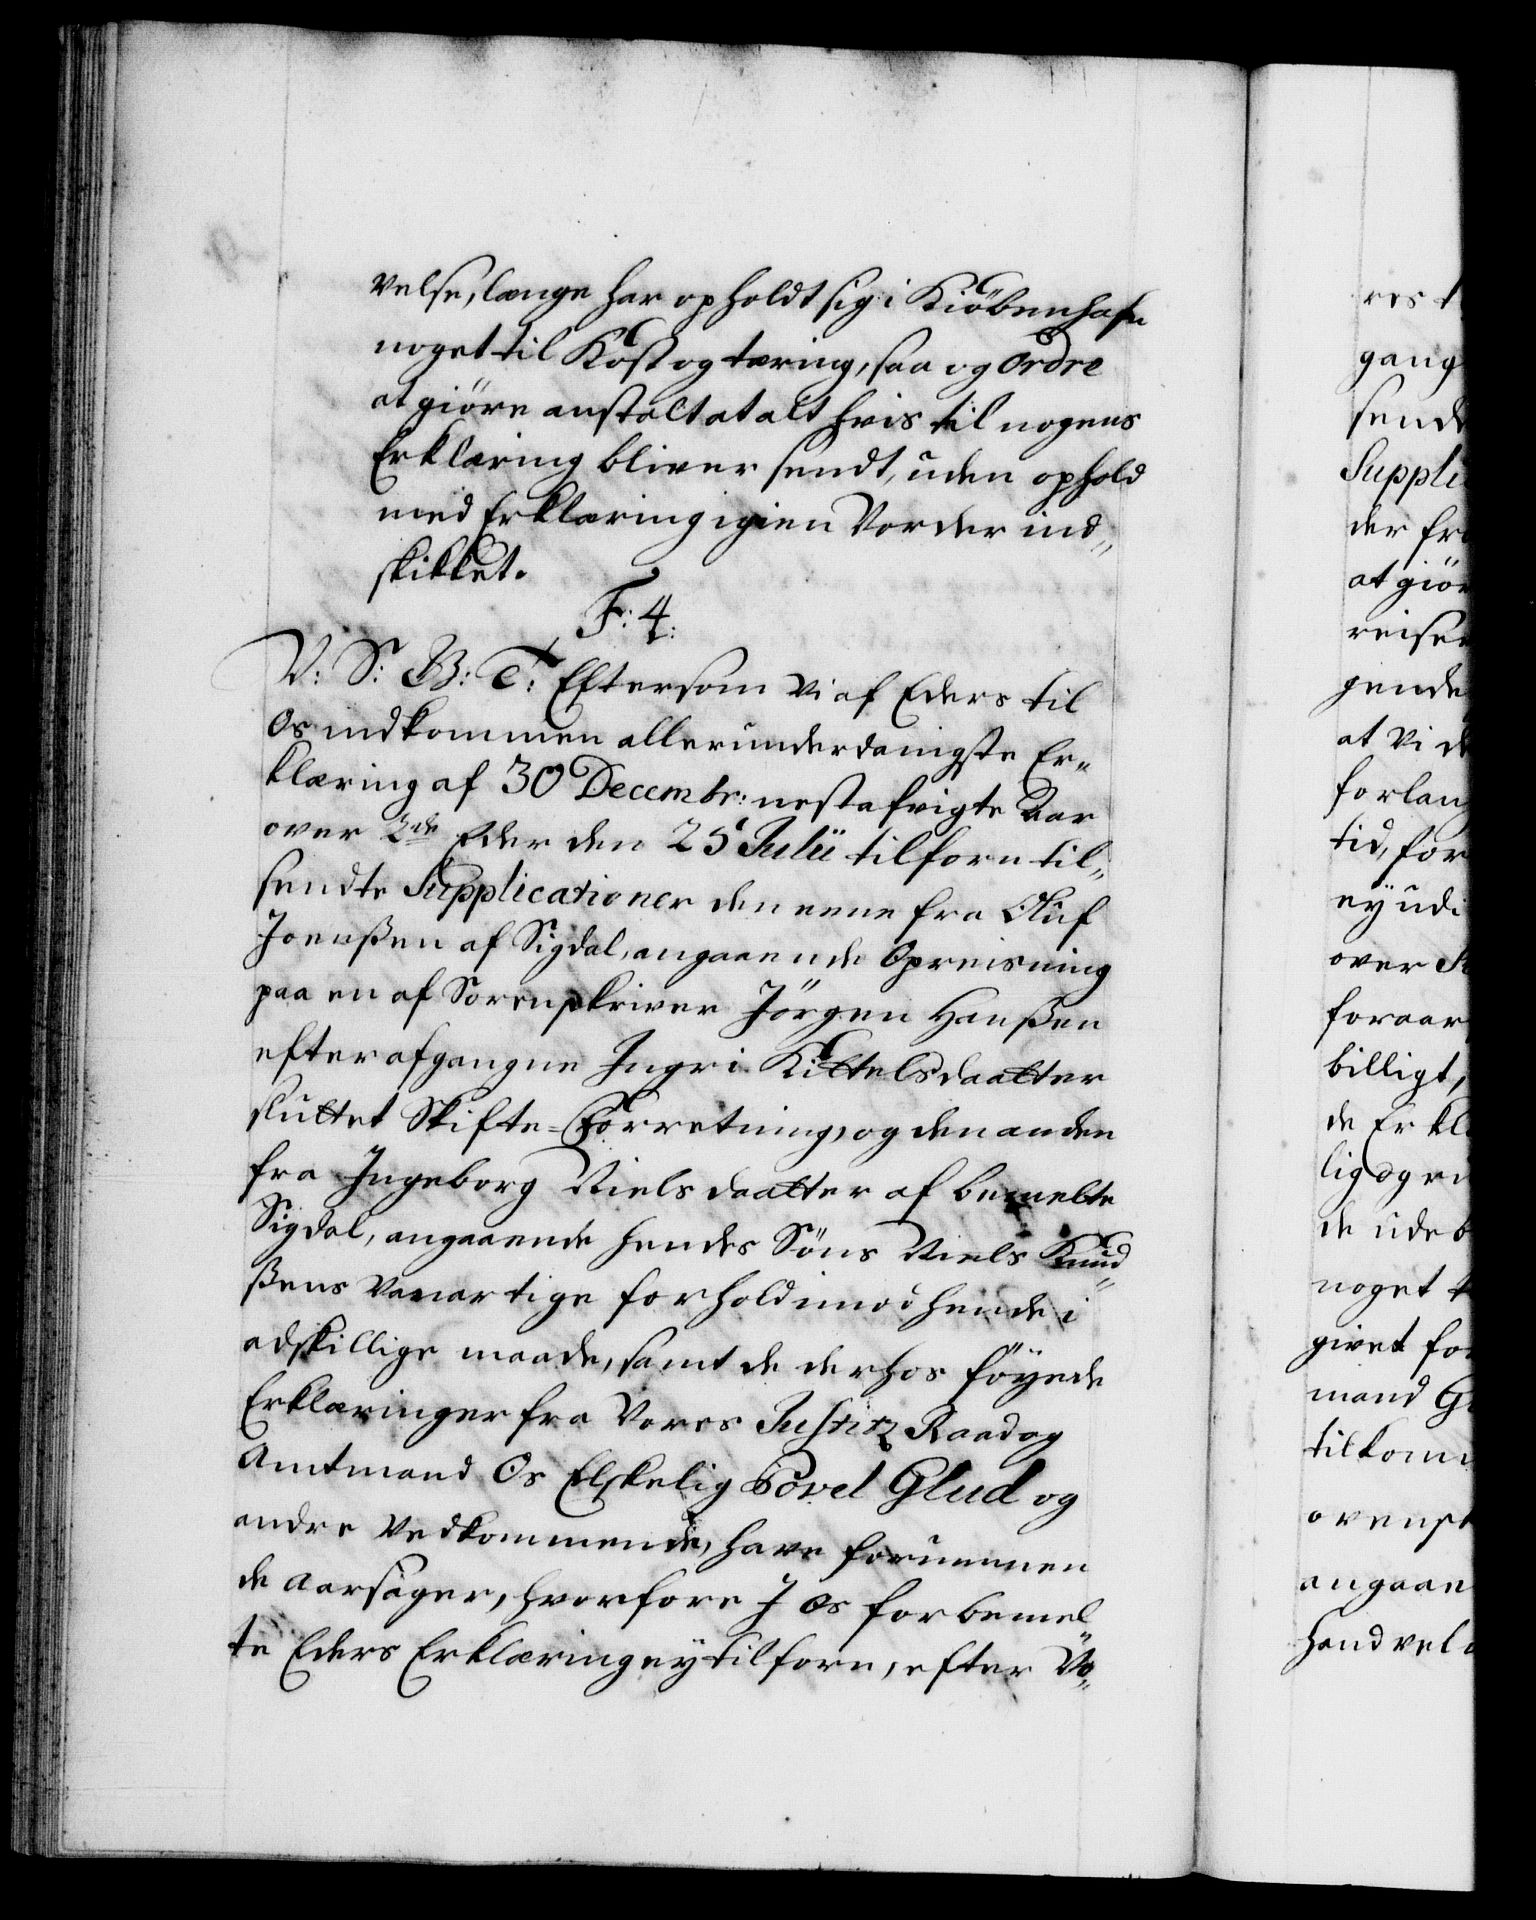 velse, længe har opholdt sig i Kiöbenhafn
noget til Kost og tæring, saa og Ordre
at giöre anstalt at alt hvis til nogens
Erklæring bliver sendt, uden ophold
med Erklæring igien Vorder ind„
skikket.
F: 4:
V: S: B: T: Eftersom Vi af Eders til
Os indkommen allerunderdanigste Er„
klæring af 30 Decembr: nestafvigte Aar
over 2de Eder den 25 Julii tilforn til„
sendte Supplicationer den eene fra Oluf
Joenßen af Sigdal, angaaende Opreisning
paa en af Sorenskriver Jörgen Hanßen
efter afgangne Ingri Kittelsdaatter
sluttet Skifte-Forretning, og den anden
fra Ingeborg Nielsdaatter af bemelte
Sigdal, angaaende hendes Söns Niels Knud„
ßens Vanartige forhold imod hende i
adskillige maade, samt de derhos föyede
Erklæringer fra Vores Justitz Raad og
Amtmand Os Elskelig Povel Glud og
andre Vedkommende, have fornummen
de Aarsager, hvorfore J Os forbemel„
te Eders Erklæring ey tilforn, efter Vo„
gang
send
Suppli
der fr
at giör
reise
gende
at Vi d
forlan
tid, for
ey udi
over
foraar
billigt,
de Erkl
lig og
de udeb
noget t
givet for
mand G
tilkom
ovenst
angaan
hand vel